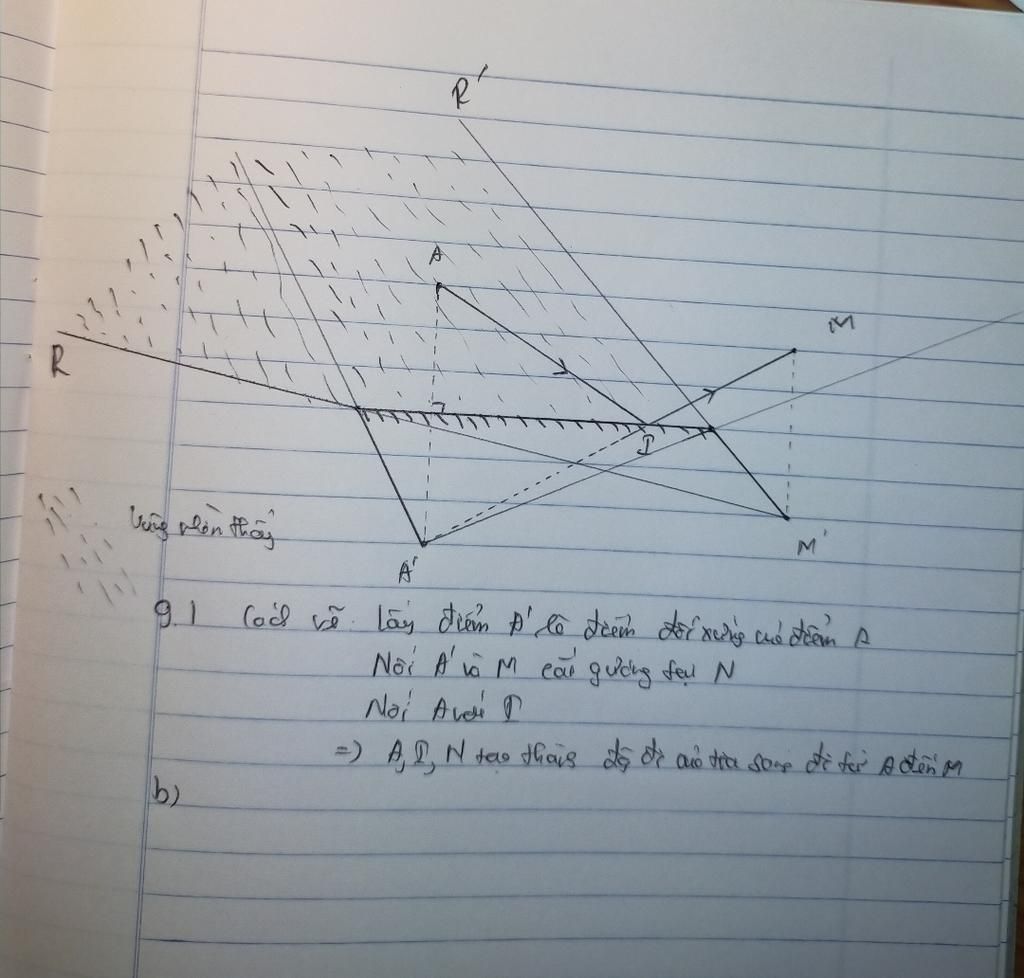 R'
A
M
R
I
M'
Vùng nhìn thấy
A'
9.1 Cách vẽ. Lấy điểm A' là điểm đối xứng của điểm A
Nối A' và M cắt gương tại N
Nối A với I
=) A, I, N tạo thành đi của tia sáng đi từ A đến M
b)